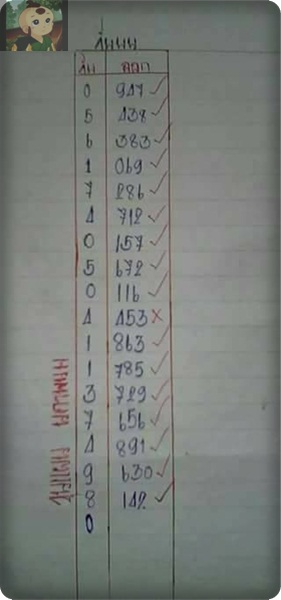 วิ่งบน
วิ่ง ออก
0 947 ✓
5 438 ✓
6 383 ✓
1 069 ✓
7 286 ✓
4 712 ✓
0 157 ✓
5 672 ✓
0 116 ✓
4 453 ×
1 863 ✓
1 785 ✓
3 729 ✓
7 656 ✓
4 891 ✓
9 630 ✓
8 142 ✓
0